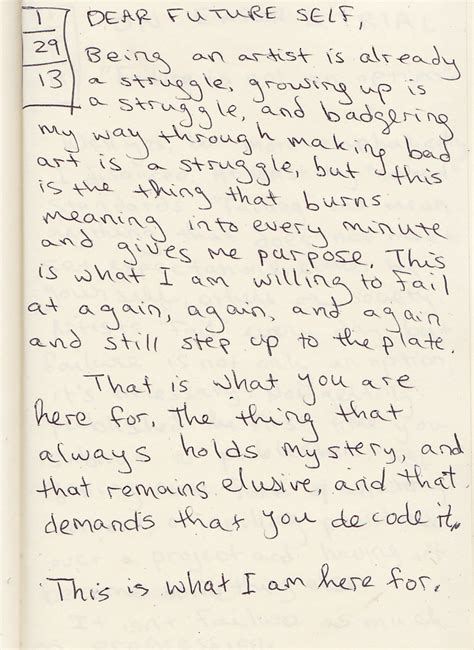 1
29
13
DEAR FUTURE SELF,
Being an artist is already
a struggle, growing up is
a struggle, and badgering
my way through making bad
art is a struggle, but this
is the thing that burns
meaning into every minute
and gives me purpose. This
is what I am willing to fail
at again, again, and again
and still step up to the plate.
That is what you are
here for. The thing that
always holds mystery, and
that remains elusive, and that
demands that you decode it.
This is what I am here for.